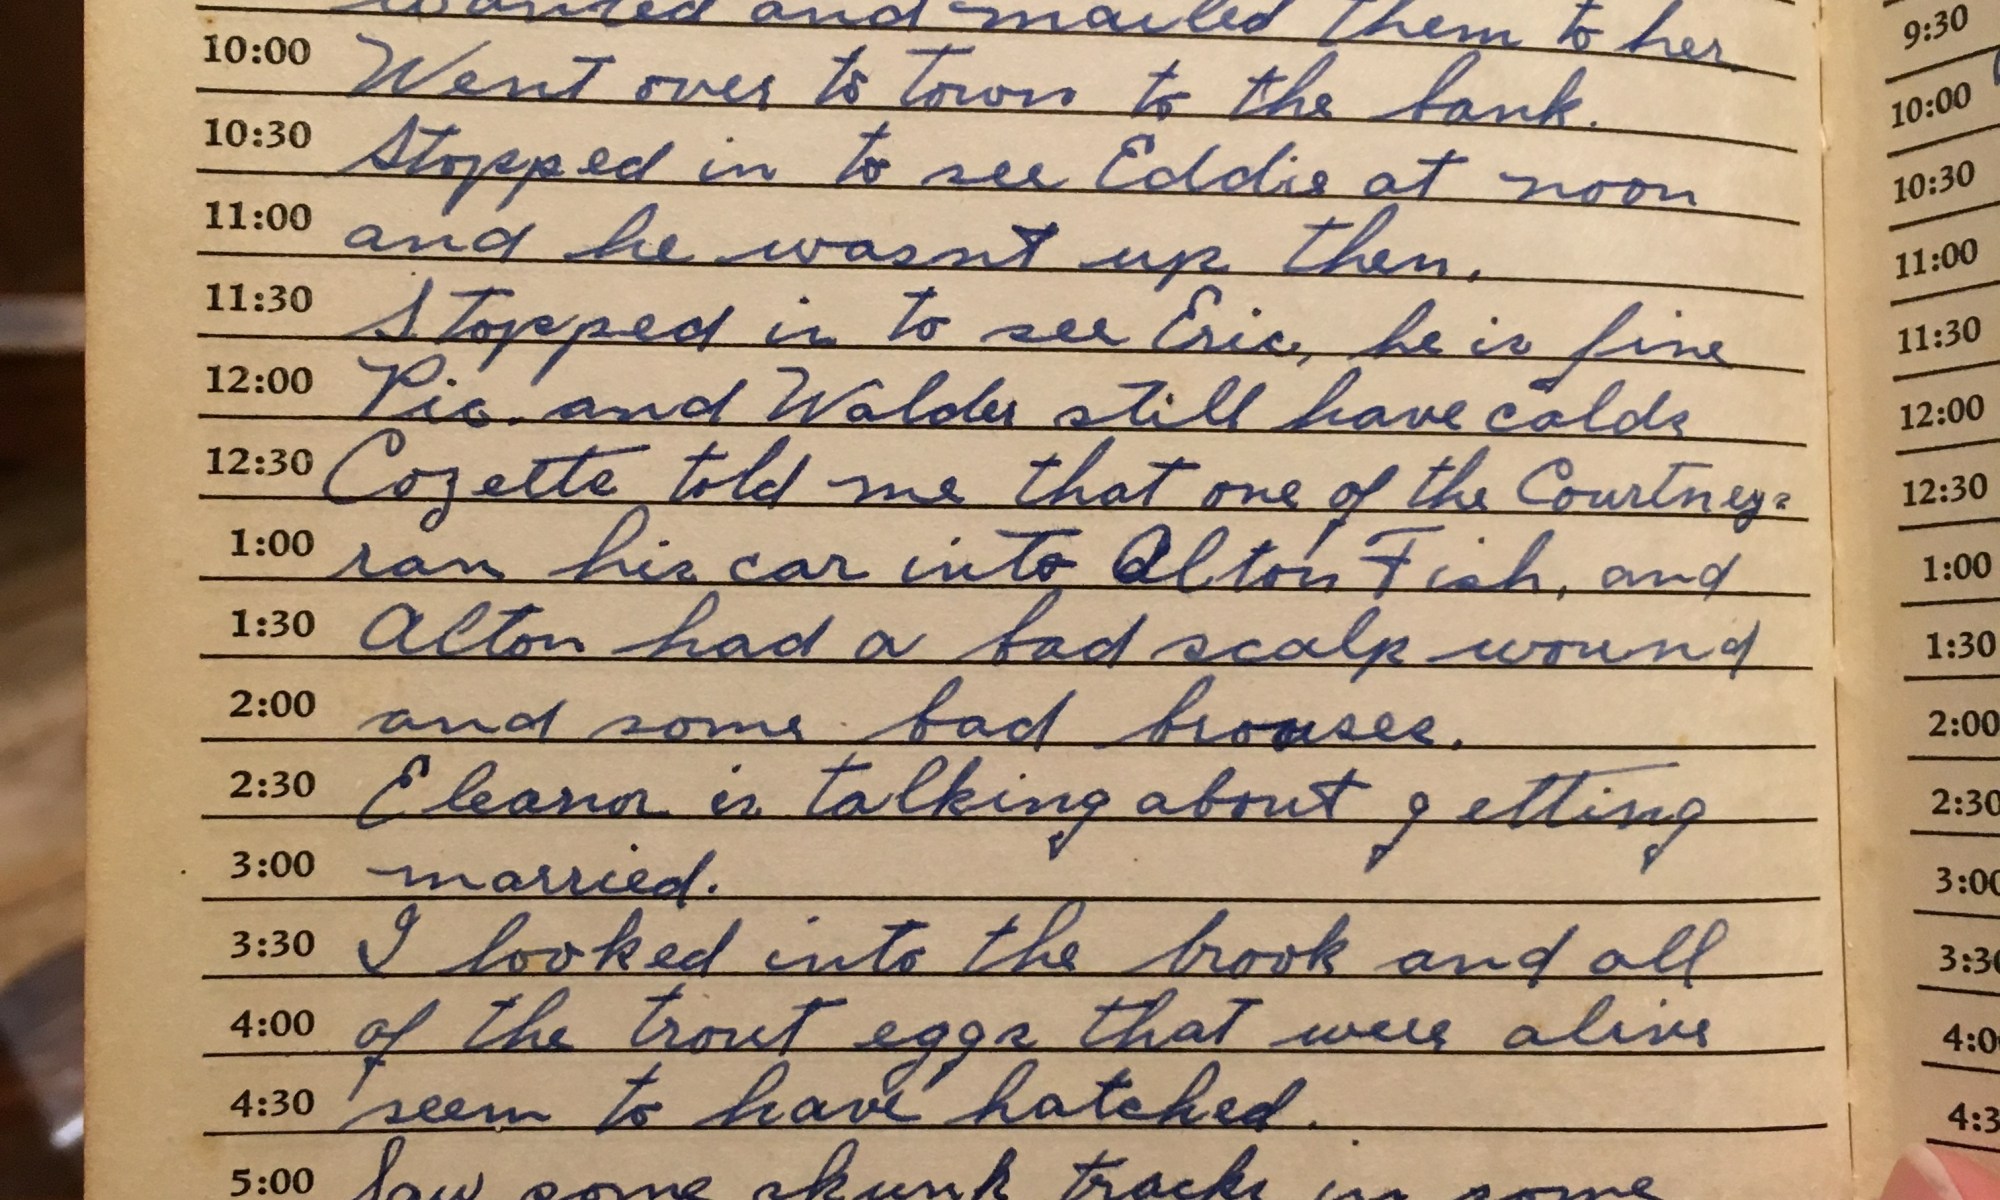 wanted and mailed them to her
10:00 Went over to town to the bank.
10:30 Stopped in to see Eddie at noon
11:00 and he wasnt up then.
11:30 Stopped in to see Eric, he is fine
12:00 Pic. and Walder still have colds
12:30 Cozette told me that one of the Courtneys
1:00 ran his car into Alton Fish, and
1:30 Alton had a bad scalp wound
2:00 and some bad brouses.
2:30 Eleanor is talking about getting
3:00 married.
3:30 I looked into the brook and all
4:00 of the trout eggs that were alive
4:30 seem to have hatched.
5:00 Saw some skunk tracks in some
9:30
10:00
10:30
11:00
11:30
12:00
12:30
1:00
1:30
2:00
2:30
3:00
3:30
4:00
4:3